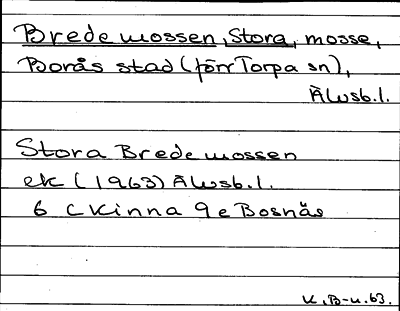 Bredemossen, Stora, mosse,
Borås stad (förr Torpa sn),
Älvsb.l.
Stora Bredemossen
ek (1963) Älvsb.l.
6 C Kinna 9e Bosnäs
K.B-n. 63.